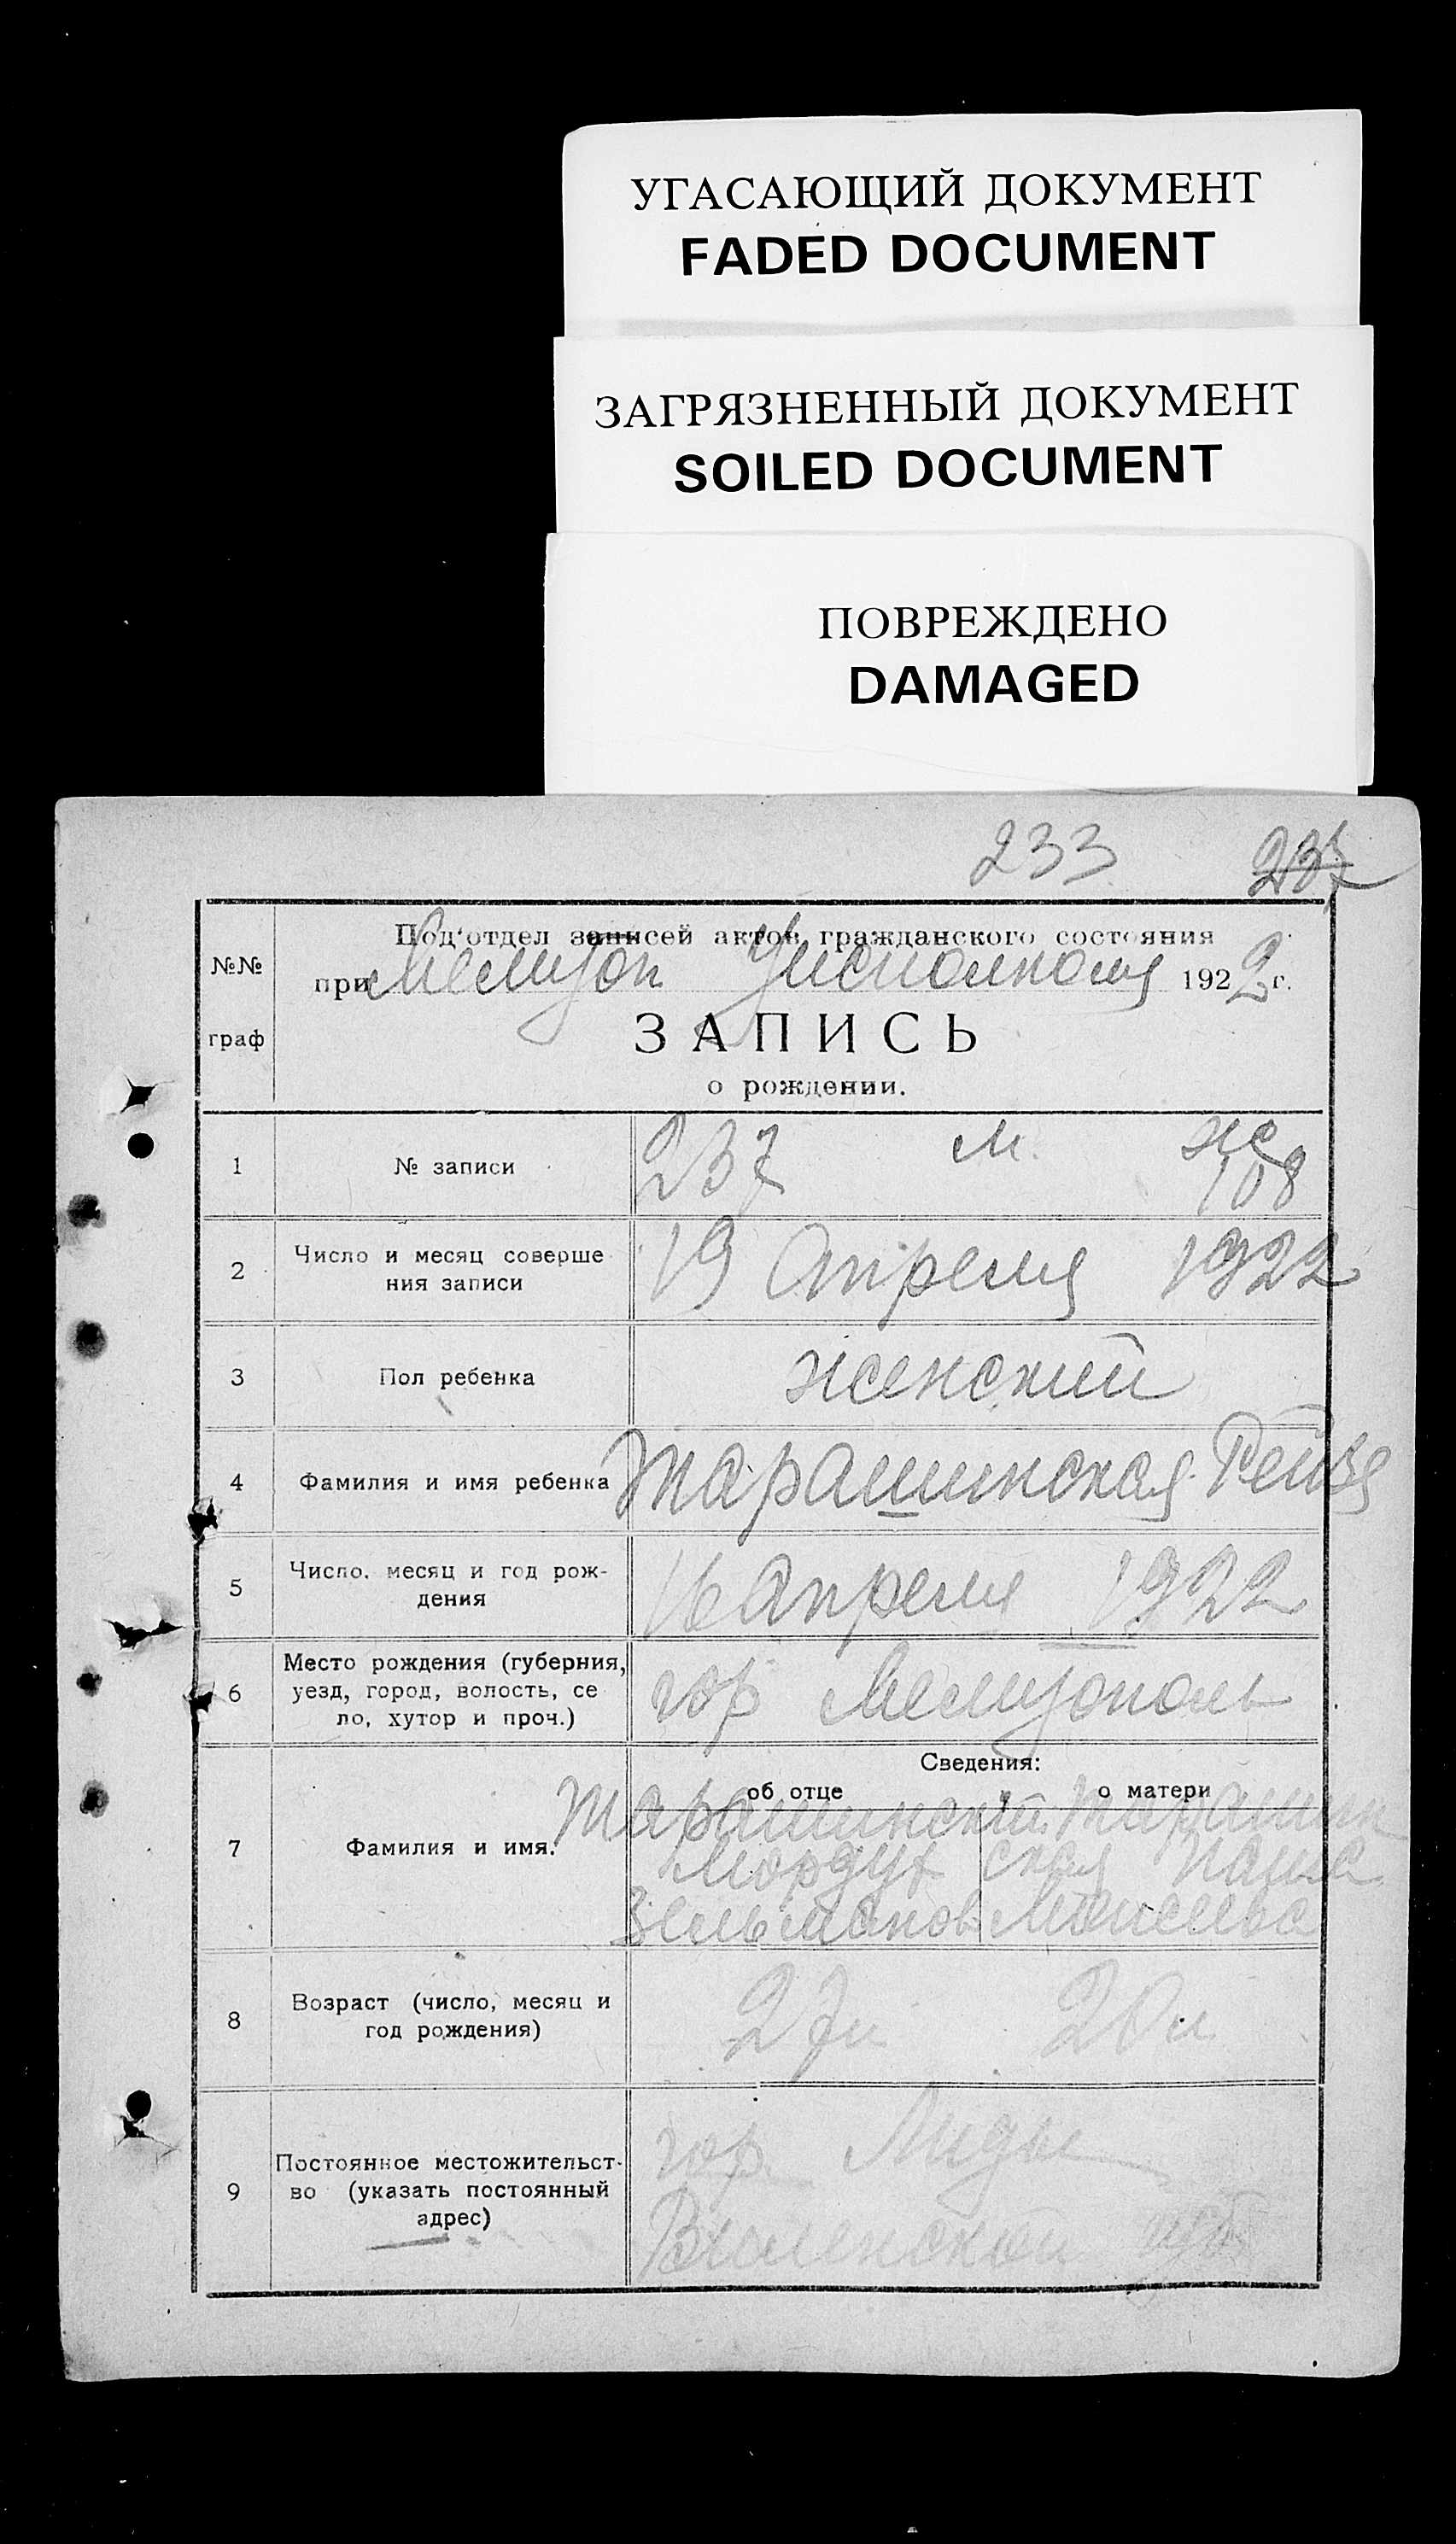 УГАСАЮЩИЙ ДОКУМЕНТ
FADED DOCUMENT
ЗАГРЯЗНЕННЫЙ ДОКУМЕНТ
SOILED DOCUMENT
ПОВРЕЖДЕНО
DAMAGED
233
№№ граф
Под'отдел записей актов гражданского состояния
при Мелитоп Уисполкома 1922 г.
ЗАПИСЬ
о рождении.
1 № записи 237 м. ж 108
2 Число и месяц соверше
ния записи 19 Апреля 1922
3 Пол ребенка женский
4 Фамилия и имя ребенка Тарашинская Рейзя
5 Число, месяц и год рож-
дения 16 Апреля 1922
6 Место рождения (губерния,
уезд, город, волость, се
ло, хутор и проч.) гор Мелитополь
Сведения:
об отце о матери
7 Фамилия и имя. Тарашинский Тарашин
Мордух ская
Зельманов
8 Возраст (число, месяц и
год рождения) 27 л 20 л
9 Постоянное местожительст-
во (указать постоянный
адрес) гор. Лиды
Виленской губ